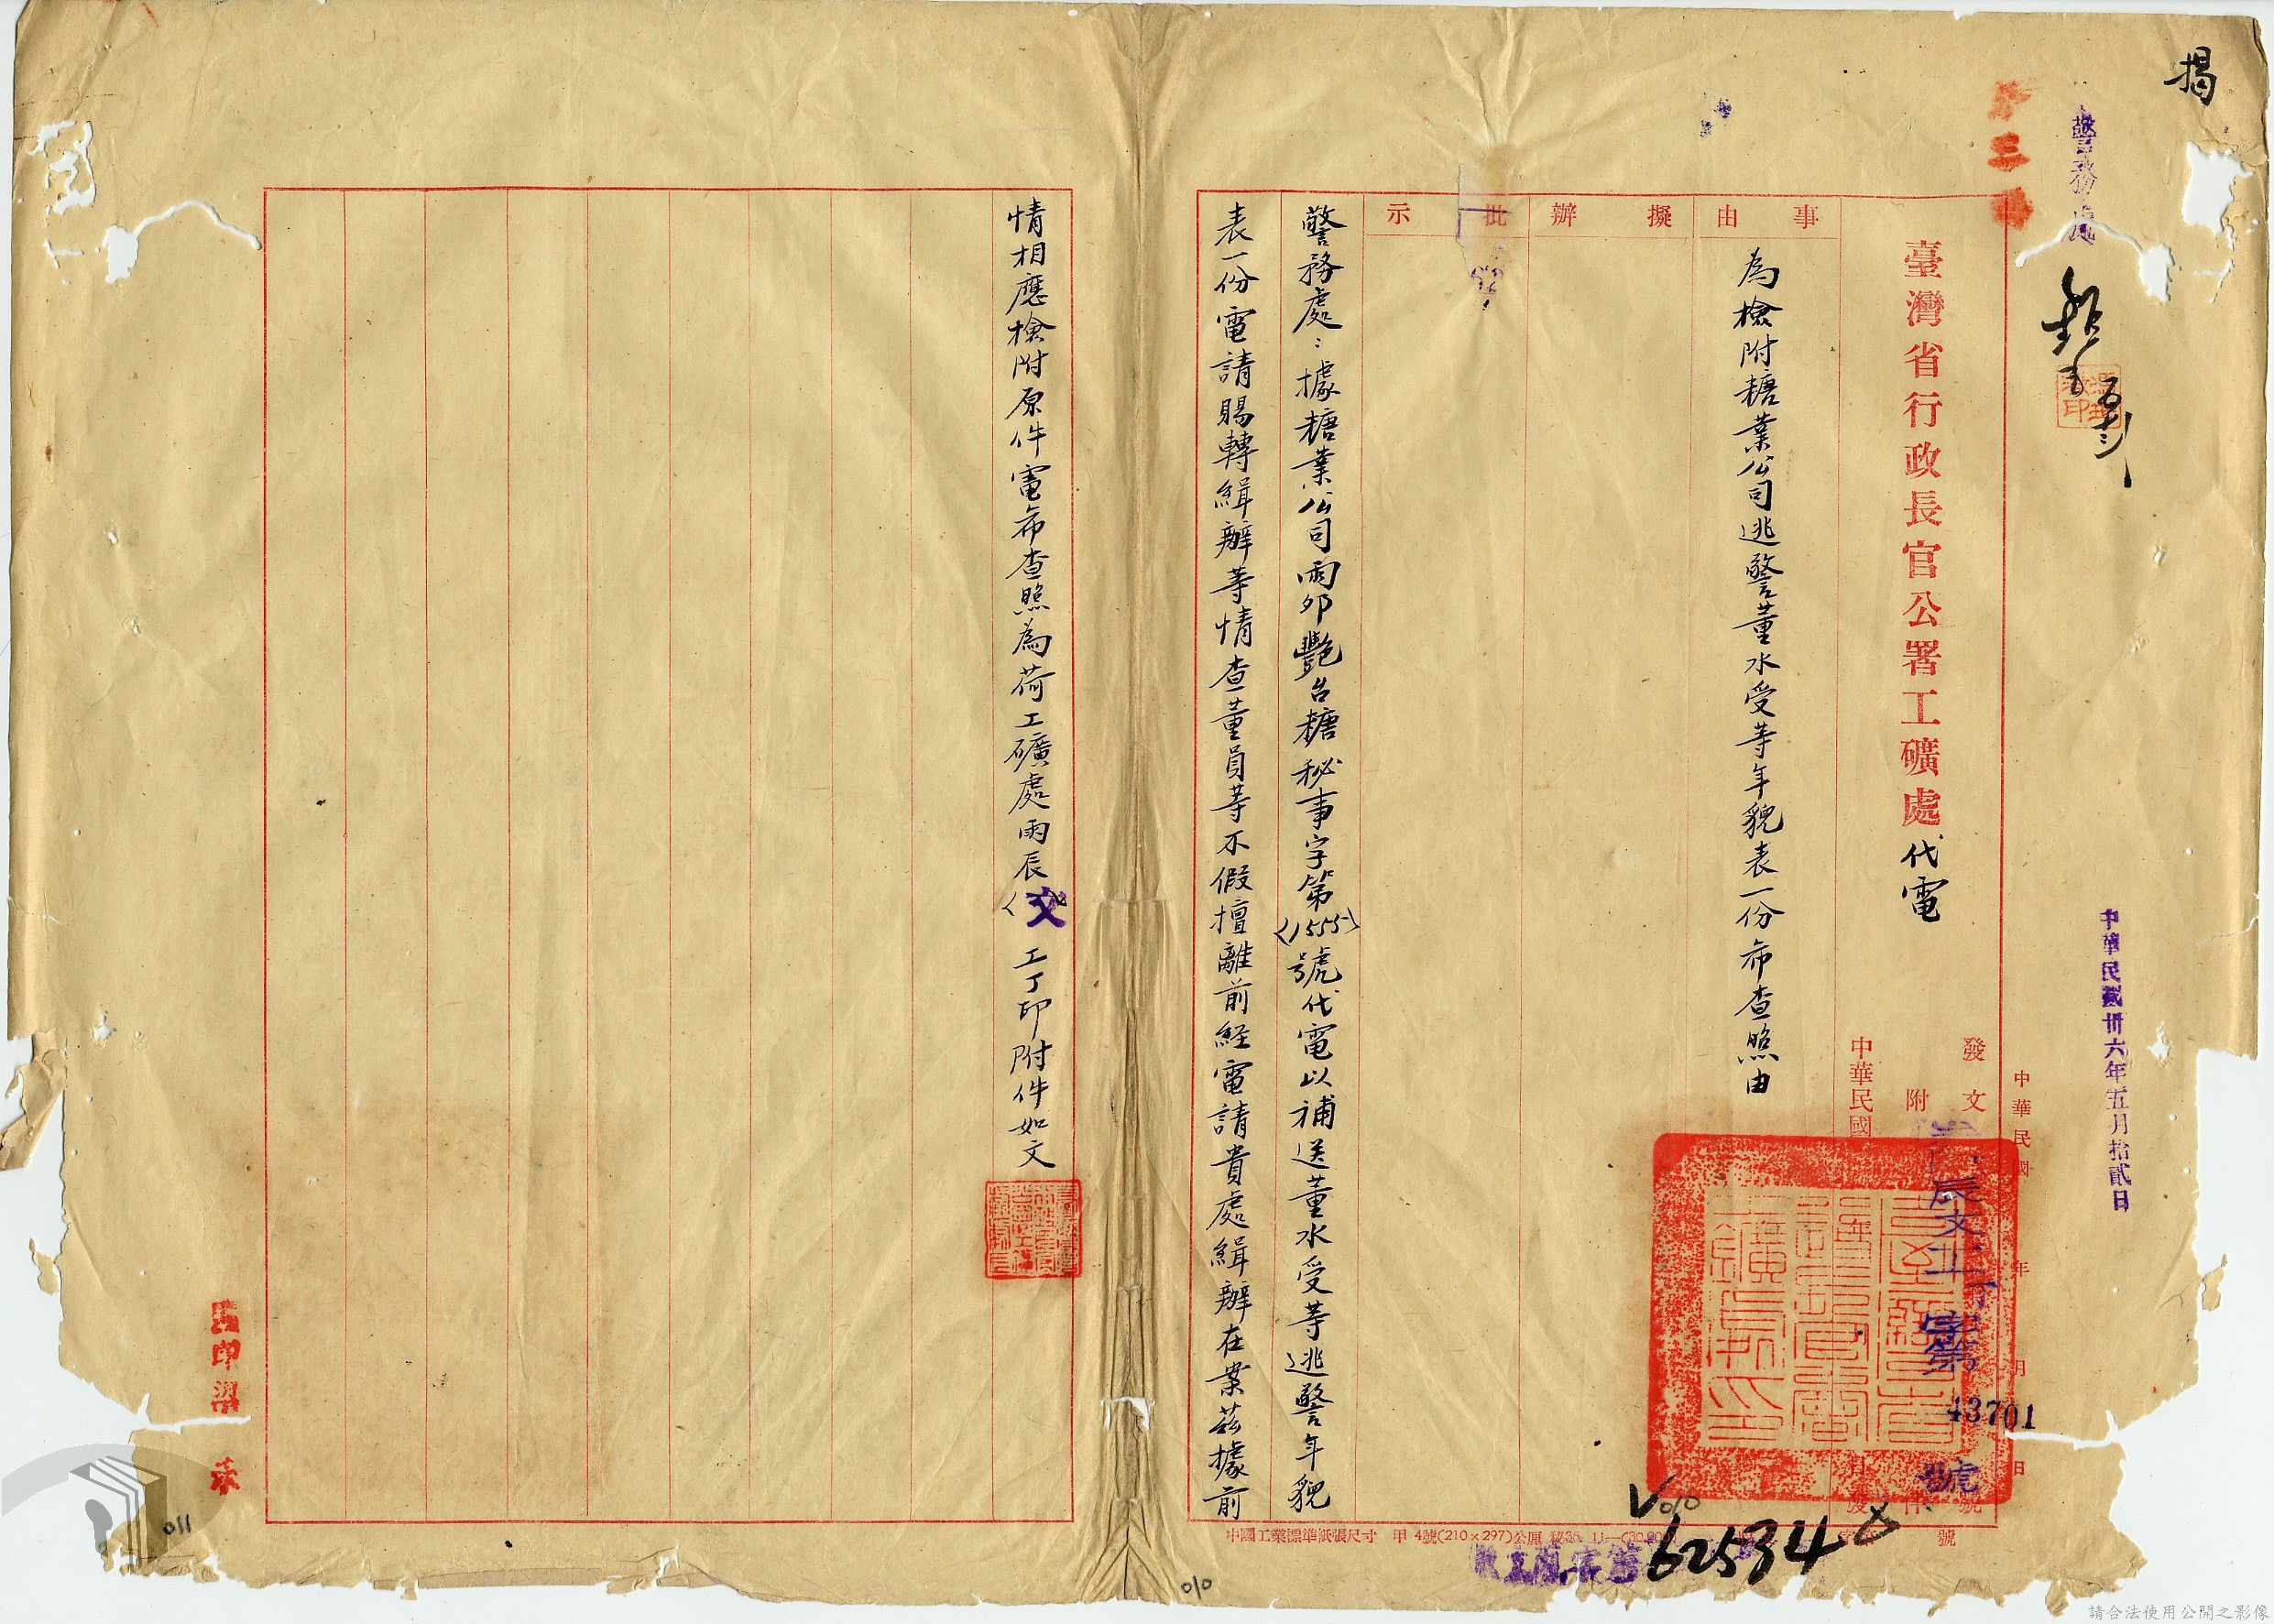 揭
警務處
中華民國卅六年五月拾貳日
中華民國 年 月 日
臺灣省行政長官公署工礦處代電
發文
附
中華民國 年 月
號
43701
事由
為檢附糖業公司逃警董水受等年貌表一份希查照由
擬辦
批示
警務處：據糖業公司雨卯艷台糖秘事字第(1555)號代電以補送董水受等逃警年貌
表一份電請賜轉緝辦等情查董員等不假擅離前經電請貴處緝辦在案茲據前
情相應檢附原件電希查照為荷工礦處雨辰(文工丁印附件如文
中國工業標準紙張尺寸 甲4號(210×297)公厘
62534
號
010
010
011
請合法使用公開之影像